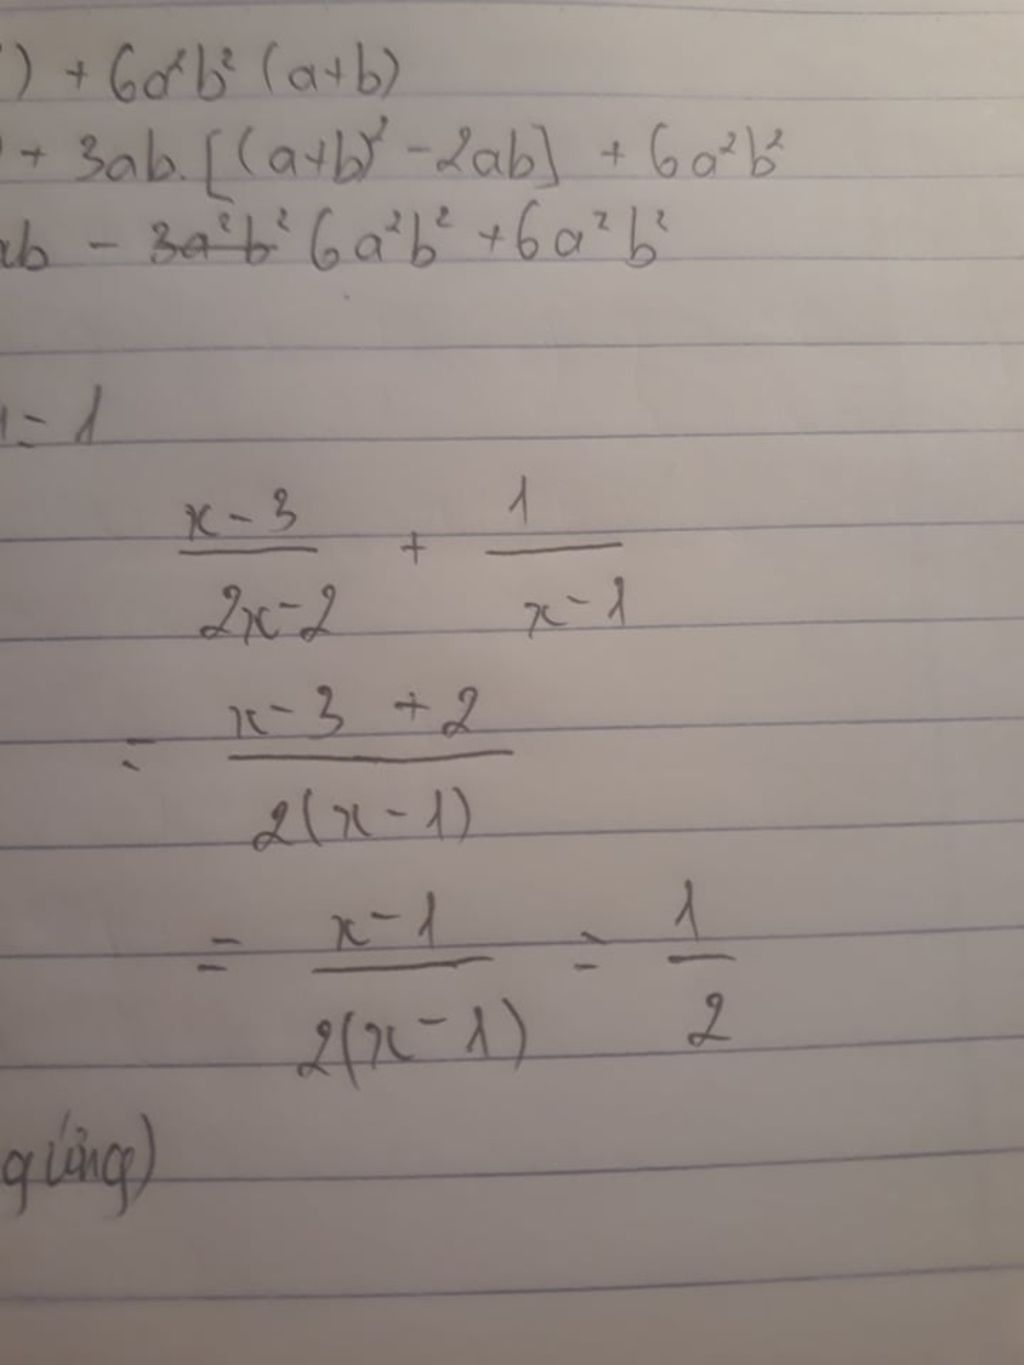 ) + 6a²b² (a+b)
+ 3ab. [(a+b)² - 2ab] + 6a²b²
ab - 3a²b² 6a²b² + 6a²b²
= 1
x - 3 / 2x - 2 + 1 / x - 1
= x - 3 + 2 / 2(x - 1)
= x - 1 / 2(x - 1) = 1 / 2